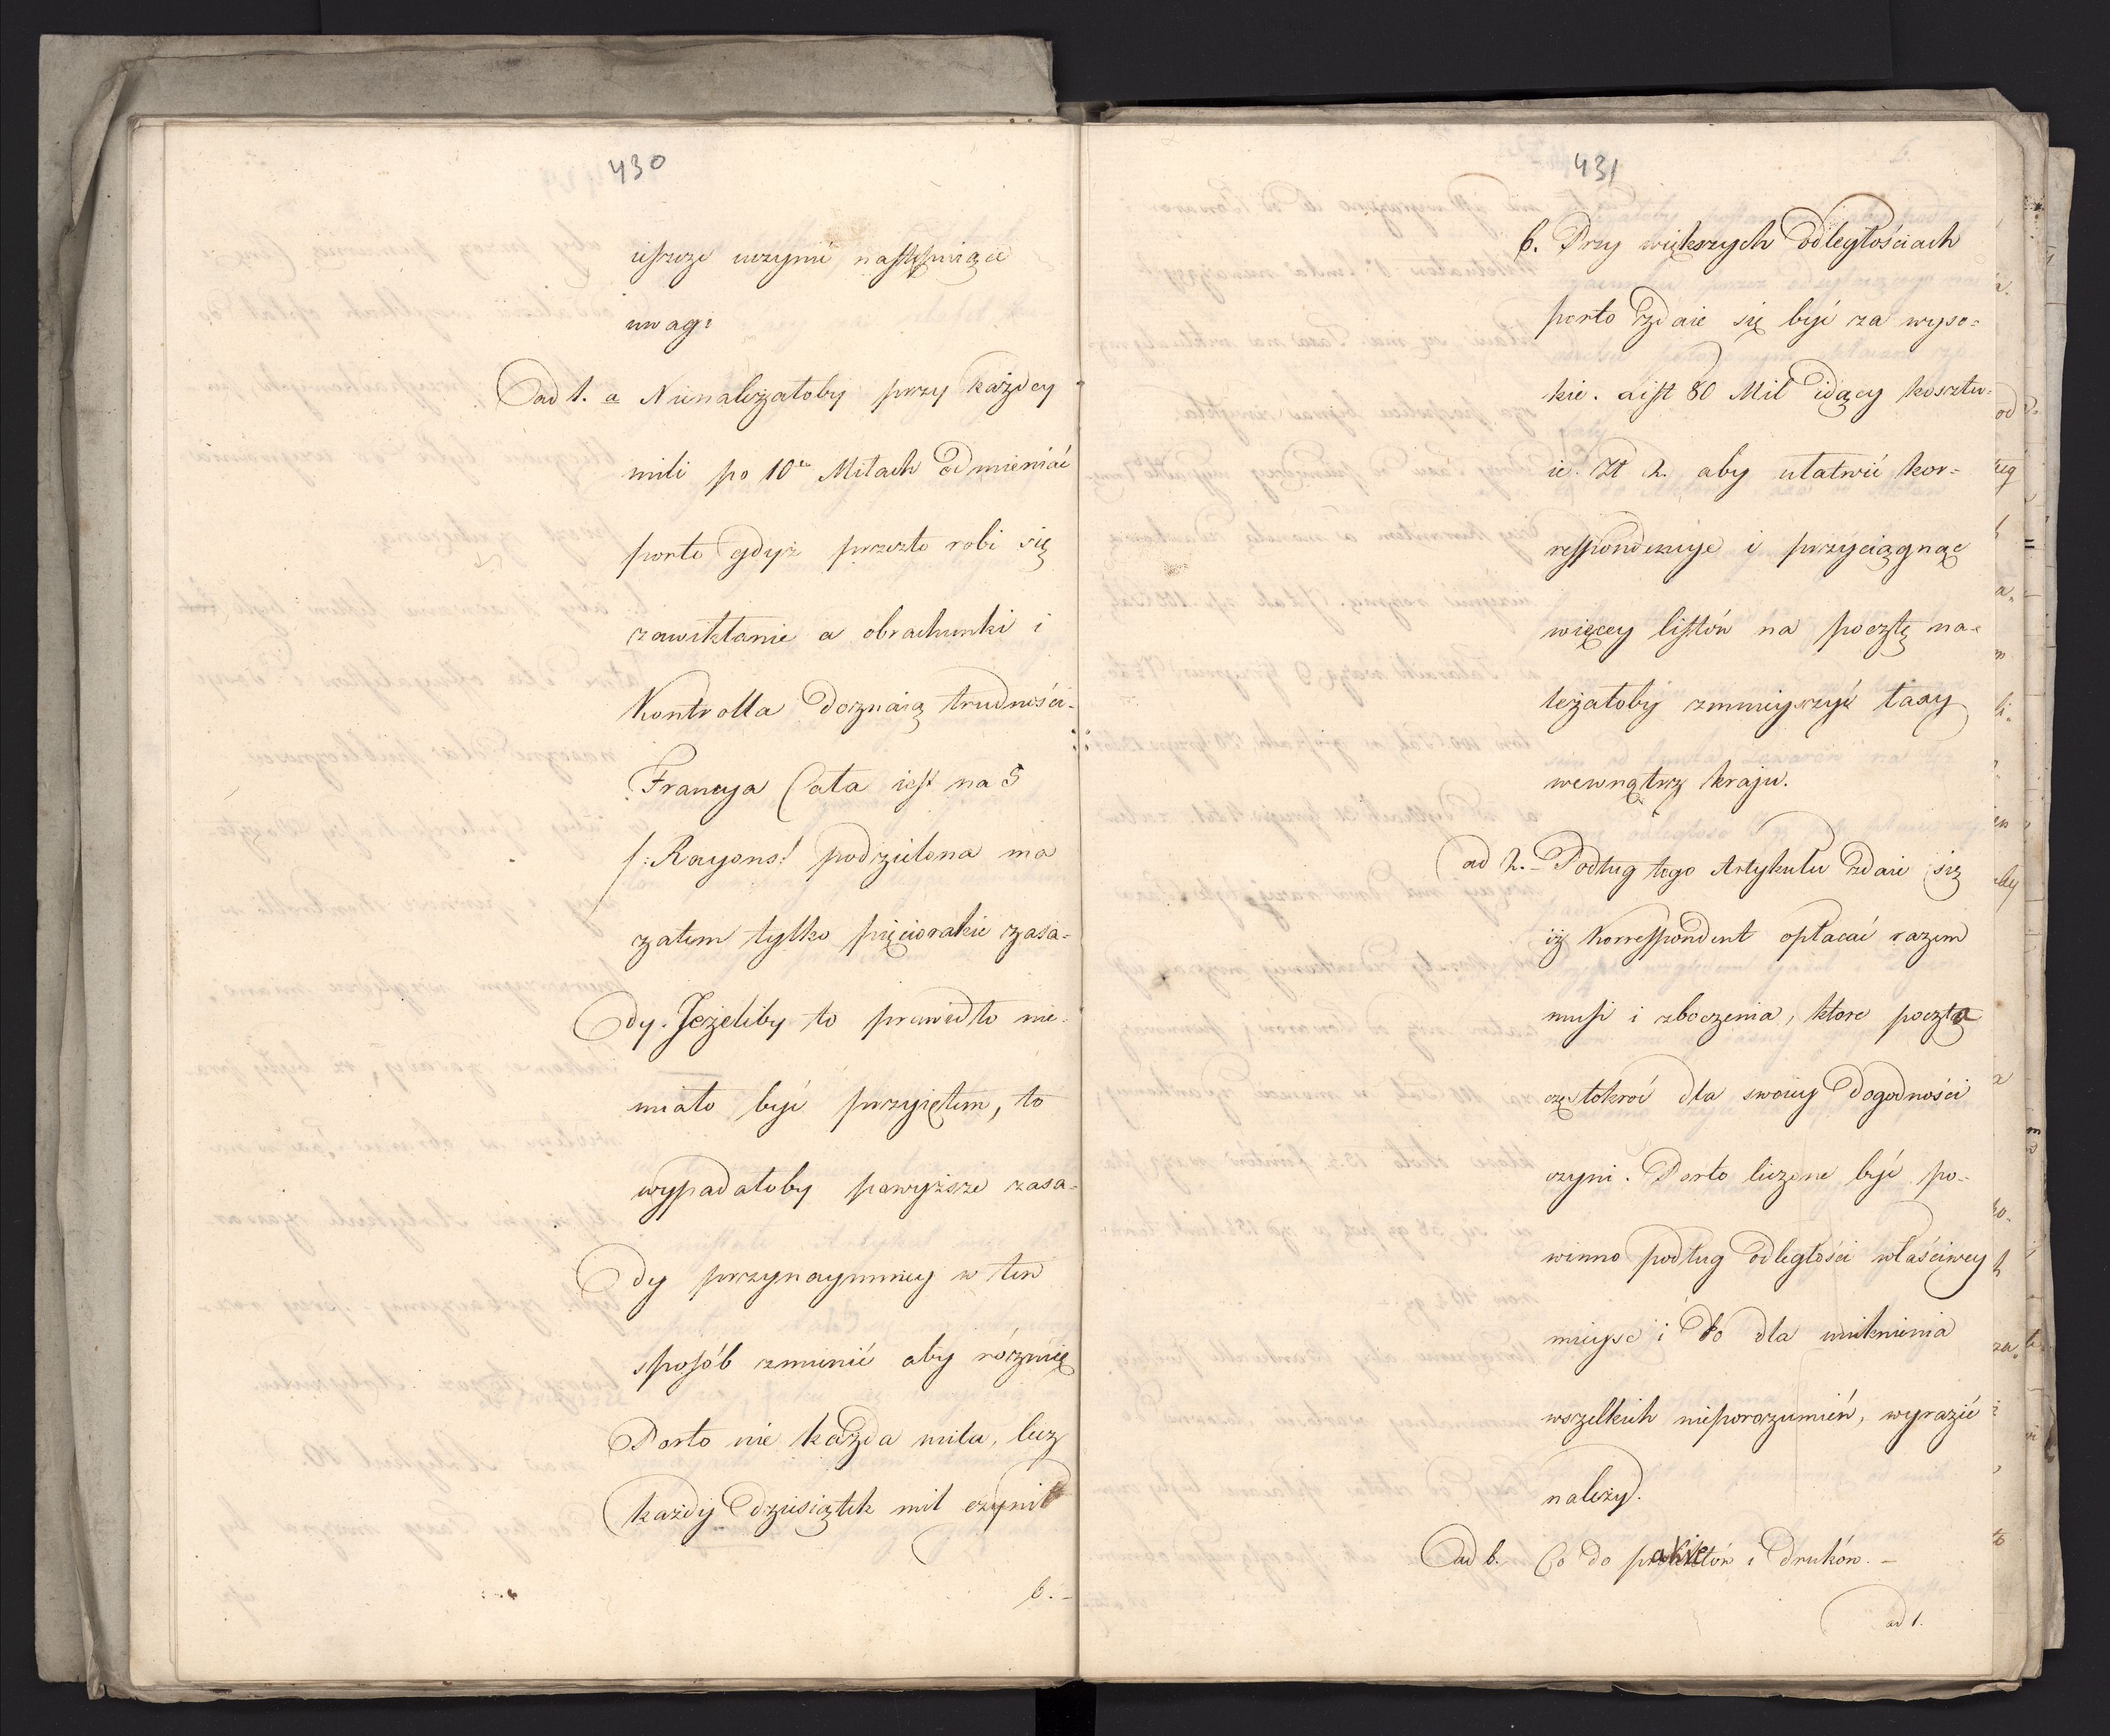 430
ieszcze uczynić następuiące
uwagi
ad 1. a Nienależałoby przy każdey
mili po 10u Milach odmieniać
porto gdyż przezto robi się
zawikłanie a obrachunki i
Kontrolla doznaią trudności.
Francya Cała iest na 5
/:Rayons:/ podzielona ma
zatem tylko pięciorakie zasa=
dy. Jeżeliby to prawidło nie
miało być przyiętem, to
wypadałoby powyższe zasa=
dy przynaymniey w ten
sposób zmienić aby różnicę
Porto nie każda mila, lecz
każdy dziesiątek mil czynił
b. -
431
b. Przy większych odległościach
porto zdaie się być za wyso=
kie. List 80 Mil idący kosztu=
ie. Zł 2. aby ułatwić kor=
respondencye i przyciągnąc
więcey listów na pocztę na=
leżałoby zmnieyszyć taxy
wewnątrz kraju.
ad 2. - Podług tego Artykułu zdaie się
iż Korrespondent opłacać razem
musi i zboczenia, które poczta
częstokroć dla swoiey dogodności
czyni. Porto liczone być po=
winno podług odległości właściwey
mieysc i to dla uniknienia
wszelkich nieporozumień, wyrazić
należy.
ad b. Co do pakietów i druków. -
ad 1.